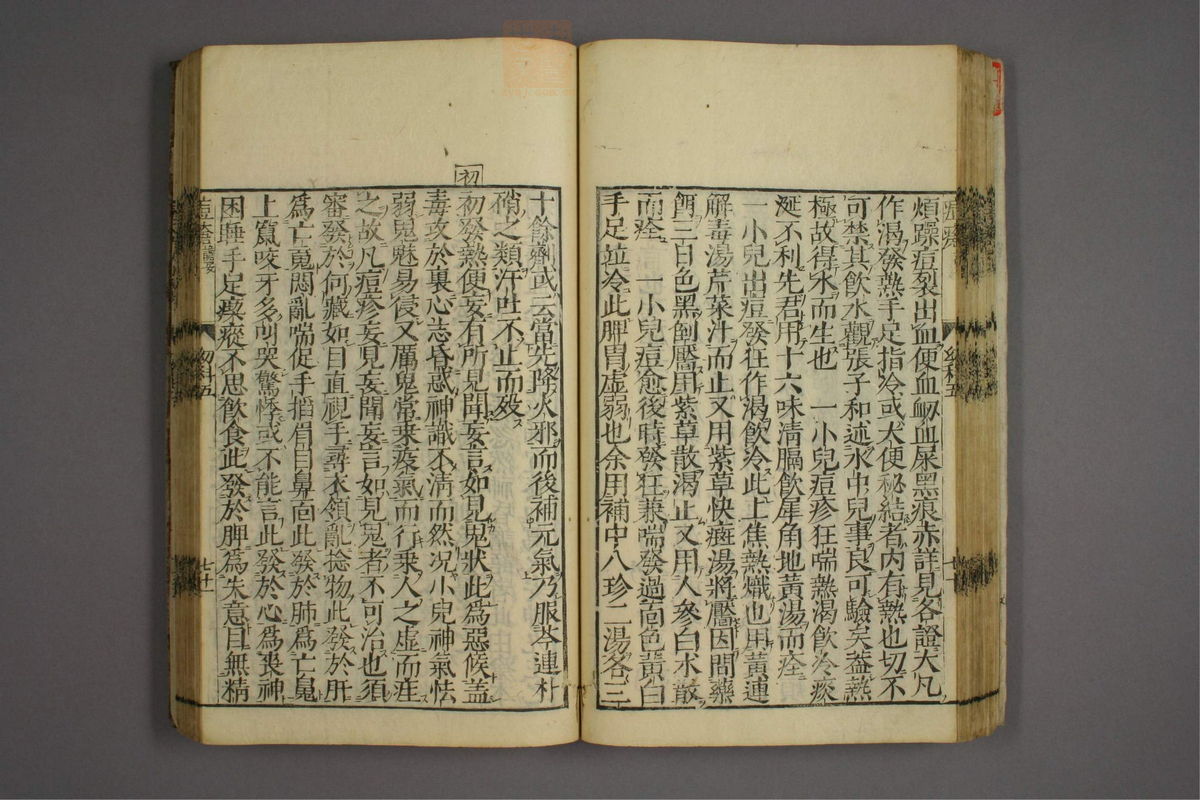 煩躁痘裂出血便血衂血屎黑痕赤詳見各證大凡
作渴發熱手足指冷或大便秘結者内有熱也切不
可禁其飲水觀張子和述水中兒事良可驗矣葢熱
極故得水而生也　一小兒痘疹狂喘熱渴飲冷痰
涎不利先君用十六味清膈飲犀角地黃湯而痊
一小兒出痘發狂作渴飲冷此上焦熱熾也用黃連
解毒湯芹菜汁而止又用紫草快癍湯將靨因間藥
餌三日色黑倒靨用紫草散渴止又用人參白术散
而痊　一小兒痘愈後時發狂兼喘發過面色黃白
手足竝冷此脾胃虚弱也余用補中八珍二湯各三
十餘劑或云當先降火邪而後補元氣乃服芩連朴
硝之類汗吐不止而歿
初
初發熱便妄有所見聞妄言如見鬼狀此爲惡候葢
毒攻於裏心志昏惑神識不清而然况小兒神氣怯
弱鬼魅易侵又厲鬼常來疫氣而行乘人之虚而涯
之故凡痘疹妄見妄聞妄言如見鬼者不可治也須
審發於何藏如目直視手尋衣領亂捻物此發於肝
爲亡䰟悶亂喘促手搯眉目鼻面此發於肺爲亡䰟
上竄咬牙多呵哭驚悸或不能言此發於心爲喪神
困睡手足瘈瘲不思飲食此發於脾爲失意目無精
幼科五
七十一